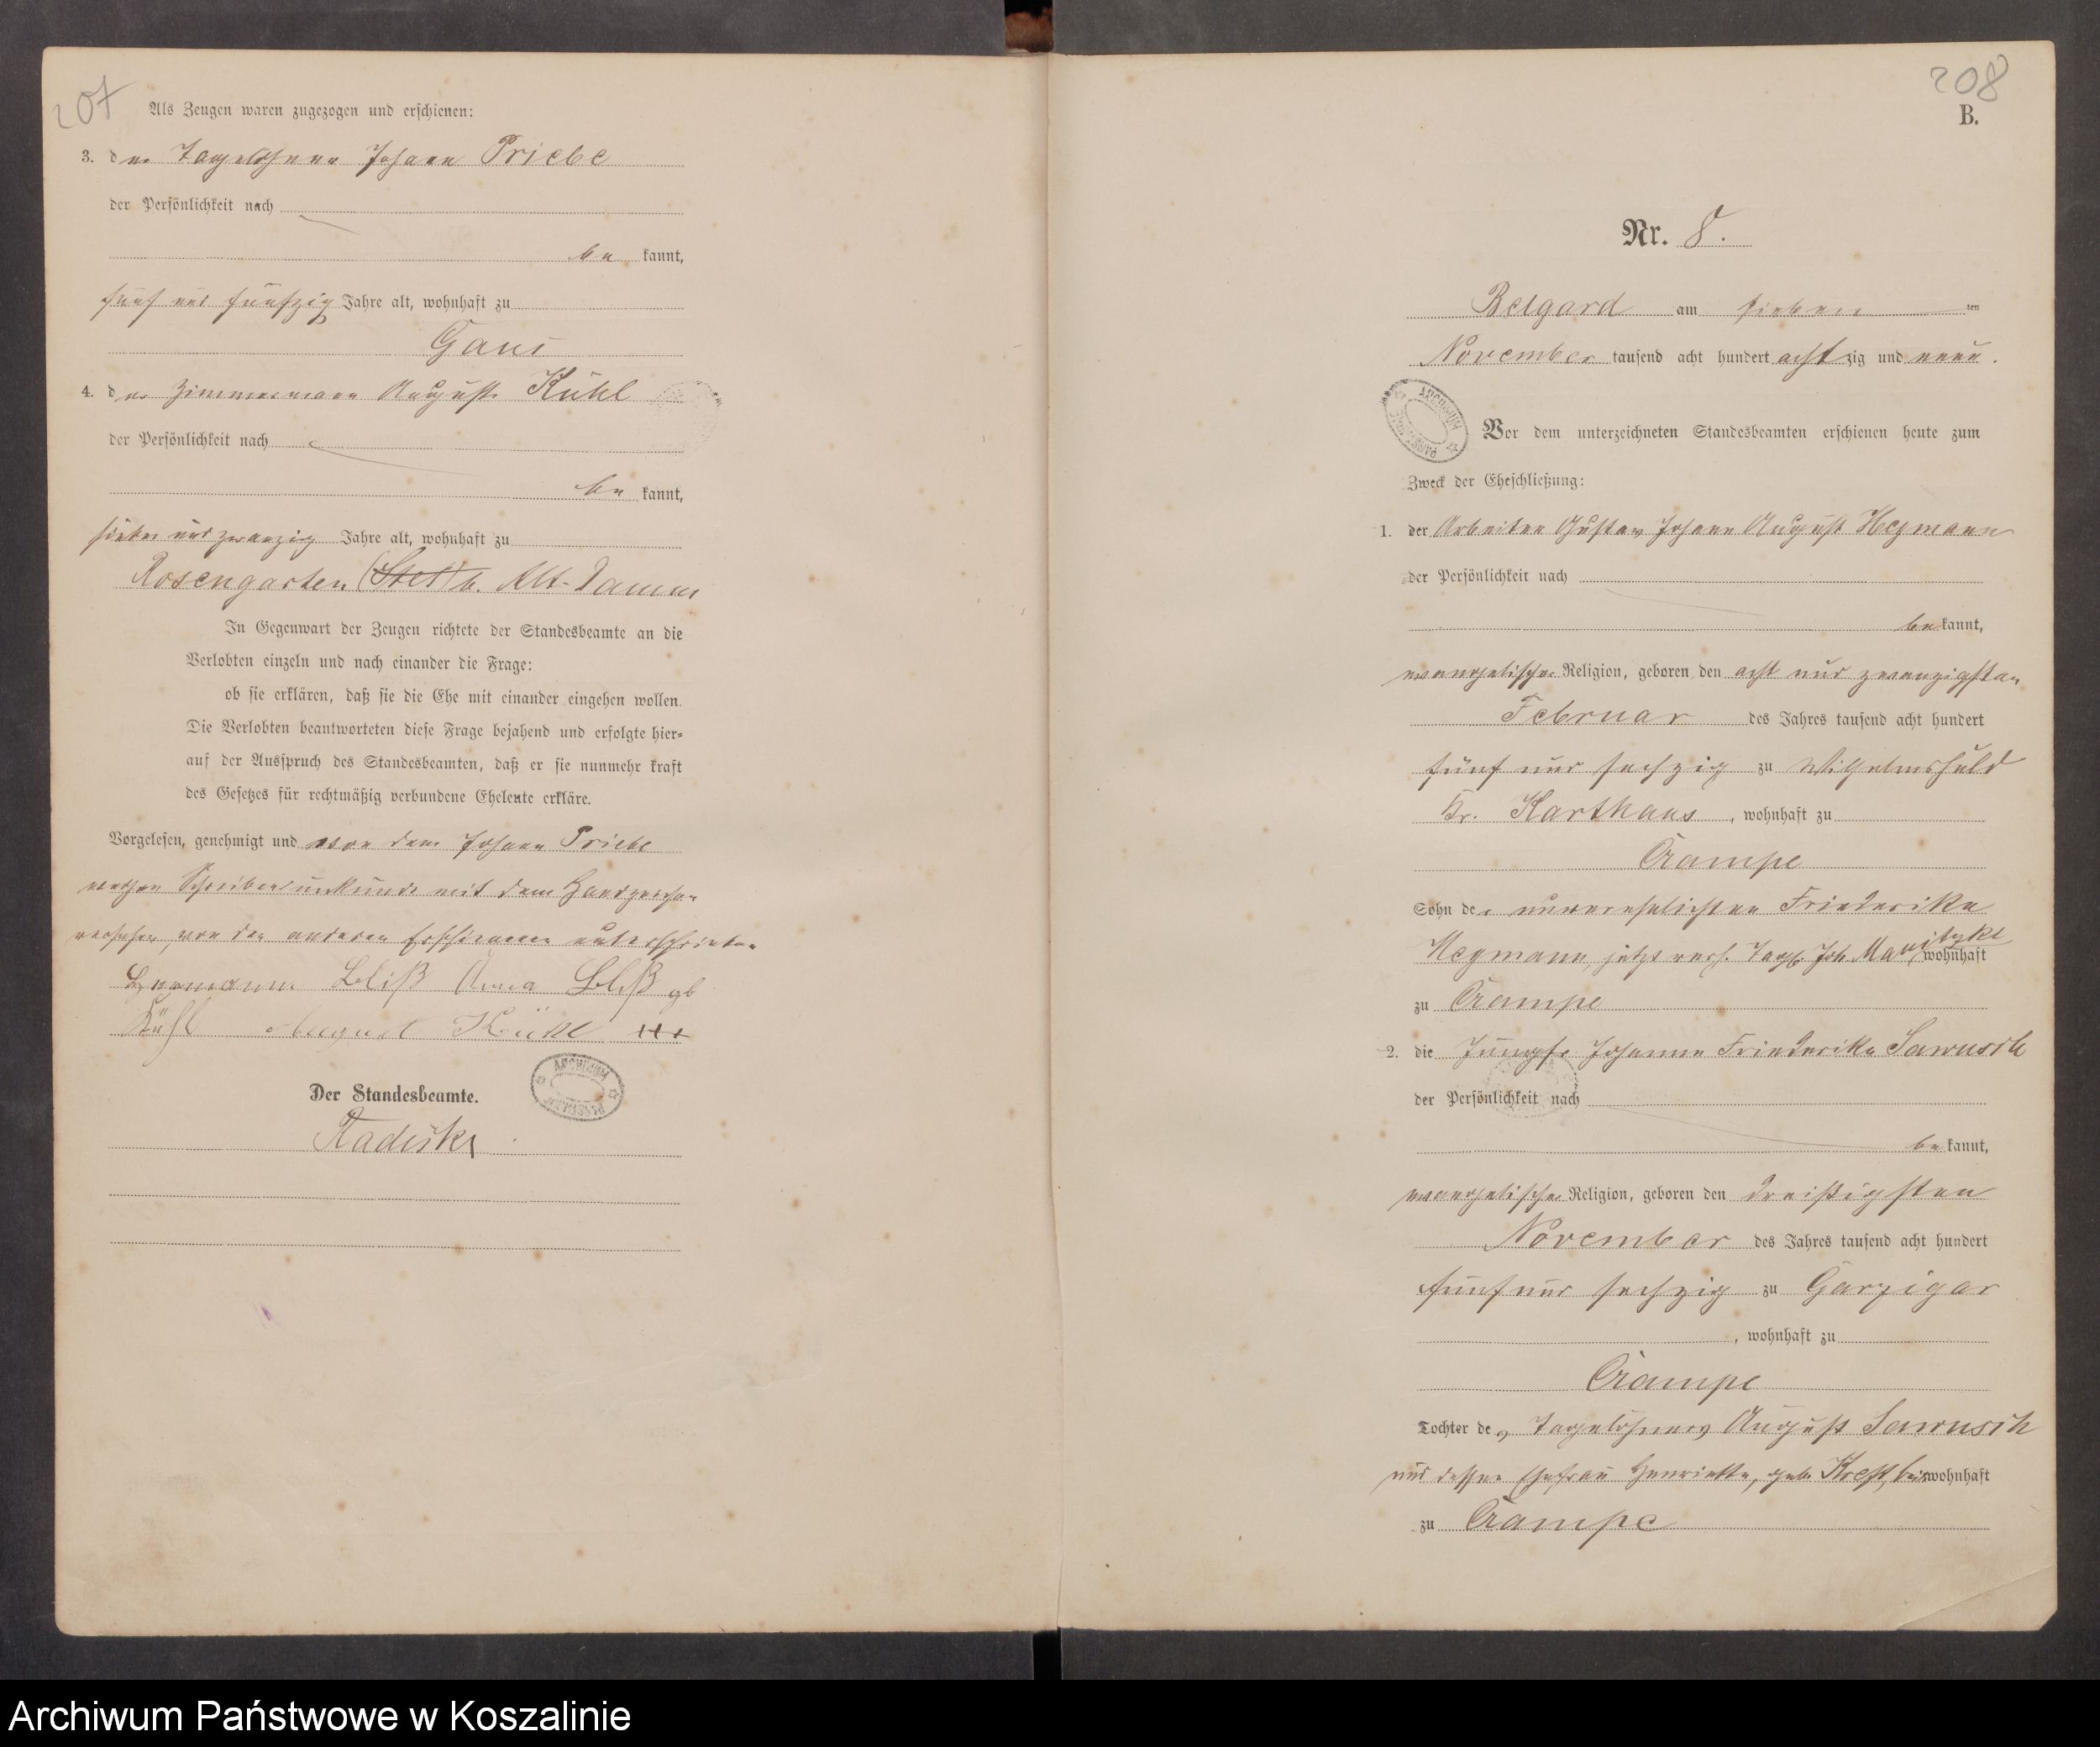 207
Als Zeugen waren zugezogen und erschienen:
3. der Tagelöhner Johann Priebe
der Persönlichkeit nach
be kannt,
fünf und fünfzig Jahre alt, wohnhaft zu
Gans
4. der Zimmermann August Kühl
der Persönlichkeit nach
be kannt,
sieben und zwanzig Jahre alt, wohnhaft zu
Rosengarten (Stet) b. Alt-Damm
In Gegenwart der Zeugen richtete der Standesbeamte an die
Verlobten einzeln und nach einander die Frage:
ob sie erklären, daß sie die Ehe mit einander eingehen wollen.
Die Verlobten beantworteten diese Frage bejahend und erfolgte hier-
auf der Ausspruch des Standesbeamten, daß er sie nunmehr kraft
des Gesetzes für rechtmäßig verbundene Eheleute erkläre.
Vorgelesen, genehmigt und von dem Johann Priebe
wegen Schreibensunkunde mit dem Handzeichen
versehen, von den anderen Erschienenen unterschrieben
Hermann Bliß Anna Bliß gb
Kühl August Kühl +++
Der Standesbeamte.
Radiske
208
B.
Nr. 8.
Belgard am sieben ten
November tausend acht hundert acht zig und neun.
Vor dem unterzeichneten Standesbeamten erschienen heute zum
Zweck der Eheschließung:
1. der Arbeiter Gustav Johann August Hegmann
der Persönlichkeit nach
be kannt,
evangelischer Religion, geboren den acht und zwanzigsten
Februar des Jahres tausend acht hundert
fünf und sechzig zu Wilhelmshuld
Kr. Karthaus, wohnhaft zu
Crampe
Sohn der unverehelichten Friederike
Hegmann, jetzt verh. Tagl. Joh. wohnhaft
zu Crampe
2. die Jungfr. Johanne Friederike Sawusch
der Persönlichkeit nach
be kannt,
evangelischer Religion, geboren den dreißigsten
November des Jahres tausend acht hundert
fünf und sechzig zu Garzigar
, wohnhaft zu
Crampe
Tochter des Tagelöhners August Sawusch
und dessen Ehefrau Henriette, geb. Kreft, beide wohnhaft
zu Crampe
ARCHIWUM
Archiwum Państwowe w Koszalinie